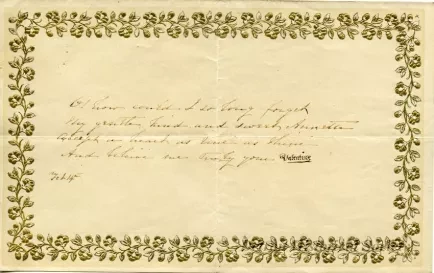 Oh how could I so long forget
My gentle, kind and sweet Annette
Accept a heart as true as thine
And believe me truly your Valentine
Feb 14